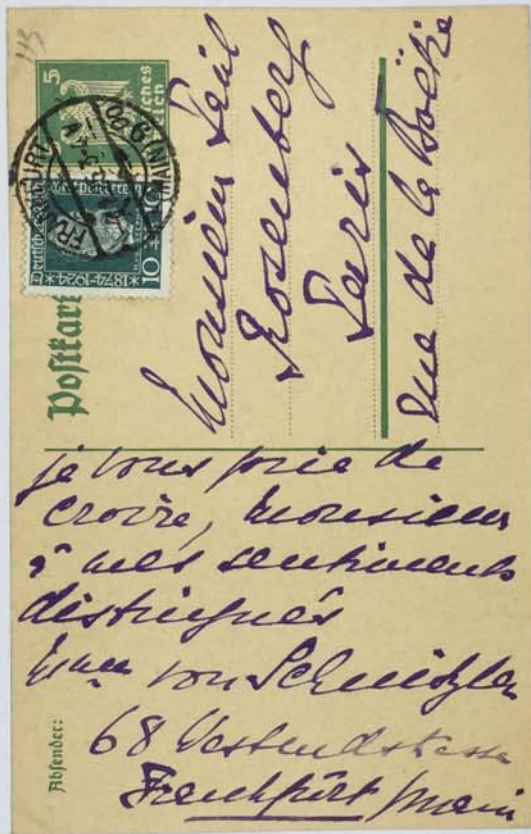 113
5
Deutsches Reich
FRANKFURT (MAIN) 9
Deutsche Reichspost Weltpostverein
10
*1874-1924*
Postkarte
Monsieur Paul
Rosenberg
Paris
rue de la Boëtie
je vous prie de
croire, Monsieur
à mes sentiments
distingués
von Schnitzler
68 Westendstrasse
Frankfurt Main
Absender: